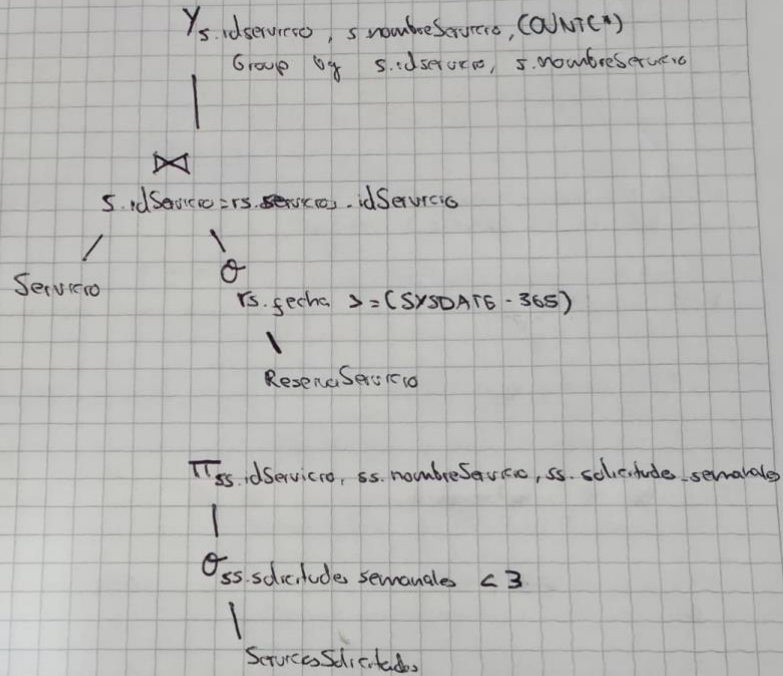 γ s.idservicio, s.nombreServicio, COUNT(*)
Group by s.idservicio, s.nombreServicio
⋈
s.idServicio = rs.servicios.idServicio
Servicio
σ
rs.fecha >= (SYSDATE - 365)
ReservaServicio
π ss.idServicio, ss.nombreServicio, ss.solicitudes_semanales
σ ss.solicitudes semanales < 3
ServiciosSolicitados